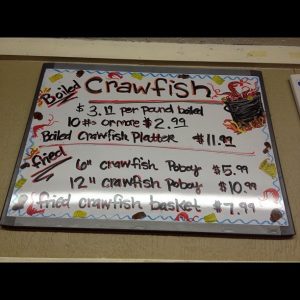 Boiled Crawfish
$3.19 per pound boiled
10 #s or more $2.99
Boiled Crawfish Platter $11.99
fried
6" crawfish Poboy $5.99
12" crawfish Poboy $10.99
fried crawfish basket $7.99